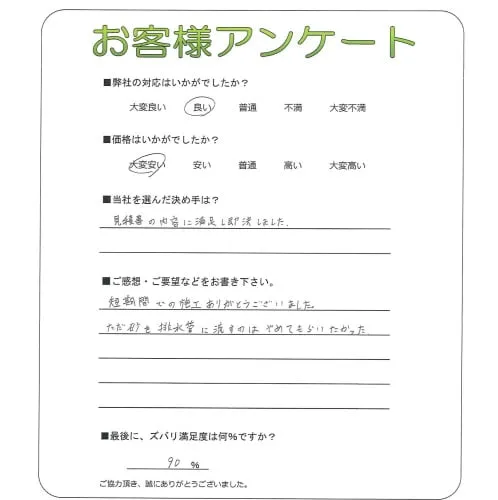 お客様アンケート
■弊社の対応はいかがでしたか？
大変良い 良い 普通 不満 大変不満
■価格はいかがでしたか？
大変安い 安い 普通 高い 大変高い
■当社を選んだ決め手は？
見積書の内容に満足し即決しました.
■ご感想・ご要望などをお書き下さい。
短期間での施工ありがとうございました。
ただ砂を排水管に流すのはやめてもらいたかった
■最後に、ズバリ満足度は何%ですか？
90 %
ご協力頂き、誠にありがとうございました。